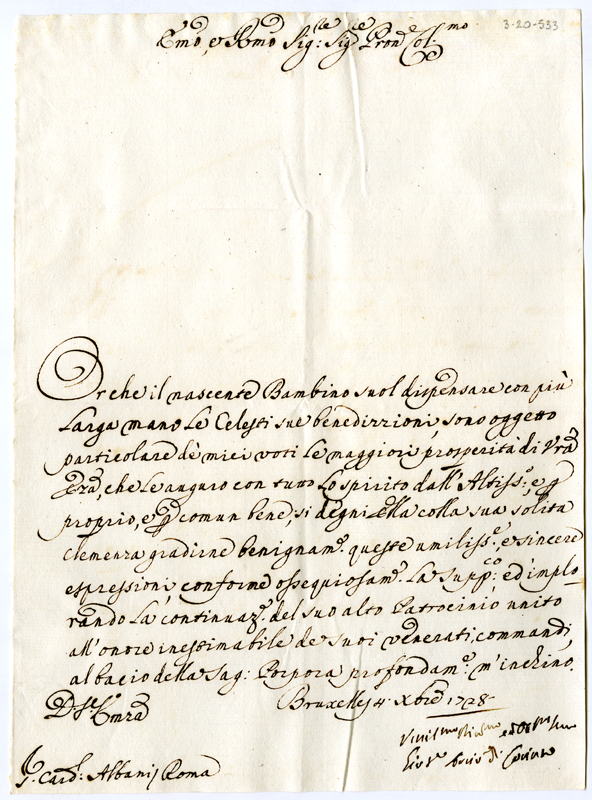 3-20-533
Emo, e Rmo Sig:re Sig:re Pron Col:mo
Or che il nascente Bambino suol dispensare con più
larga mano le Celesti sue benedizzioni, sono oggetto
particolare dè miei voti le maggiori prosperità di Vrã
Emã, che le auguro con tutto lo spirito dall'Altiss:o, e p
proprio, e p comun bene; si degni ella colla sua solita
clemenza gradirne benignam:e queste umiliss:e, e sincere
espressioni, conforme ossequiosam:e la supp:co, ed implo
rando la continuaz:e del suo alto Patrocinio, unito
all'onore inestimabile de suoi venerati commandi,
al bacio della Sag: Porpora profondam:e m'inchino.
Bruxelles 4 Xbre 1728
D. V:
S. Card:l Albani Roma